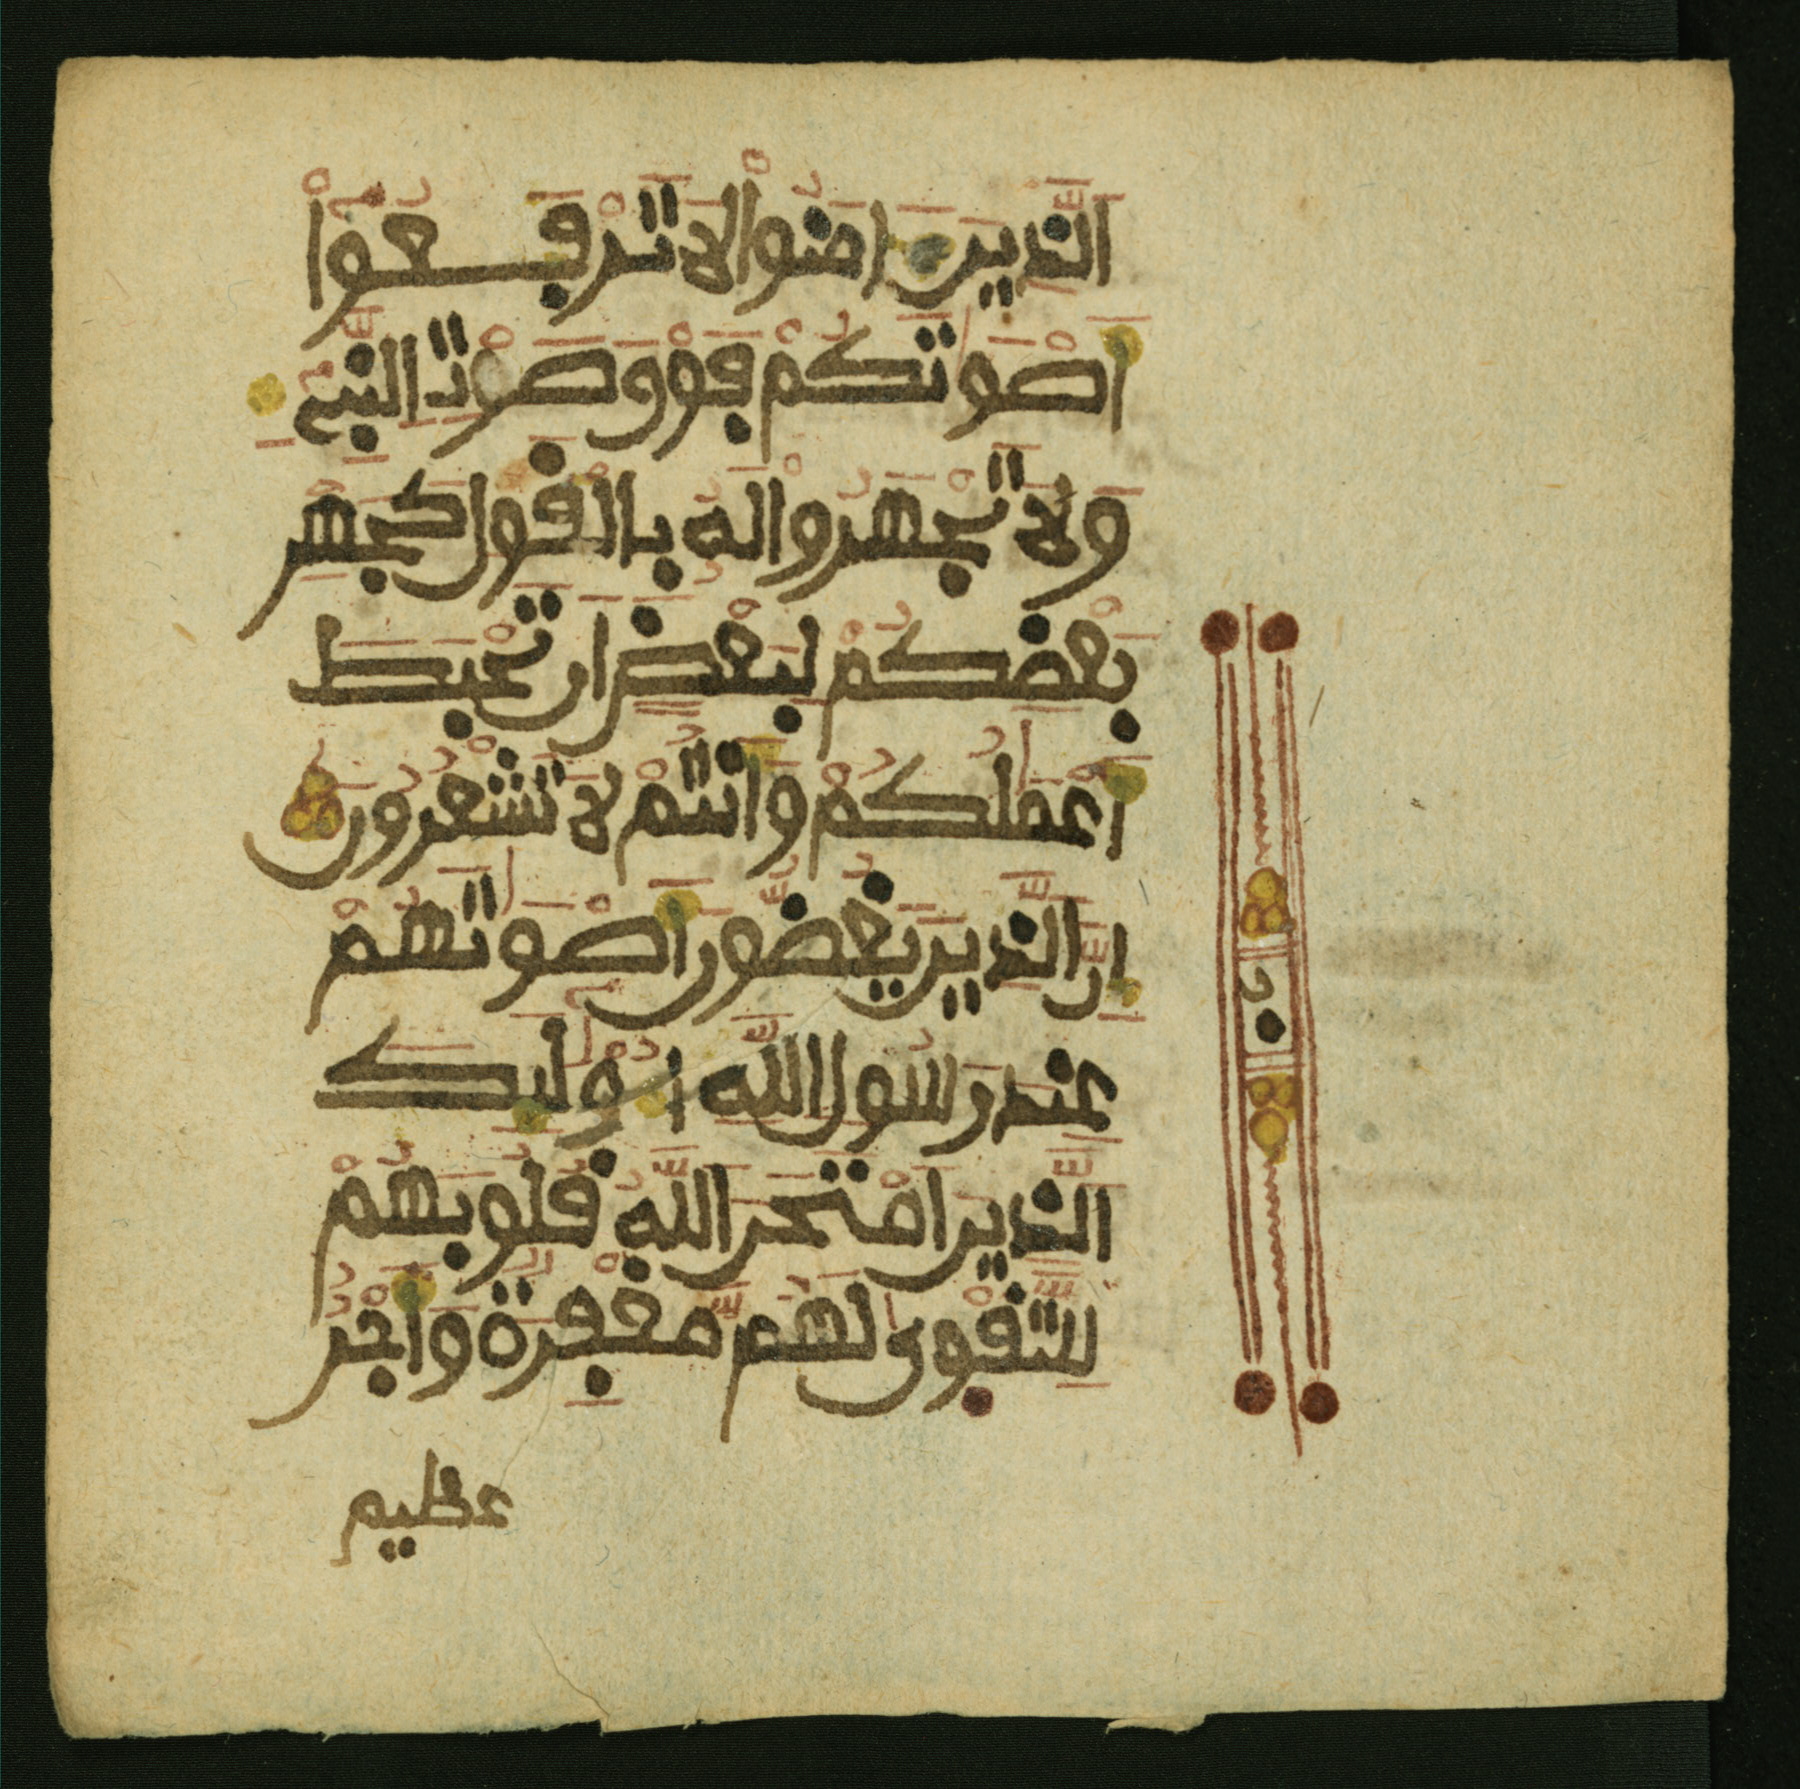 الَّذِينَ ءَامَنُواْ لَا تَرْفَعُواْ
أَصْوَٰتَكُمْ فَوْقَ صَوْتِ النَّبِيِّ
وَلَا تَجْهَرُواْ لَهُ بِالْقَوْلِ كَجَهْرِ
بَعْضِكُمْ لِبَعْضٍ أَن تَحْبَطَ
أَعْمَٰلُكُمْ وَأَنتُمْ لَا تَشْعُرُونَ
إِنَّ الَّذِينَ يَغُضُّونَ أَصْوَٰتَهُمْ
عِندَ رَسُولِ اللَّهِ أُوْلَٰئِكَ
الَّذِينَ امْتَحَنَ اللَّهُ قُلُوبَهُمْ
لِلتَّقْوَىٰ لَهُم مَّغْفِرَةٌ وَأَجْرٌ
عظيم